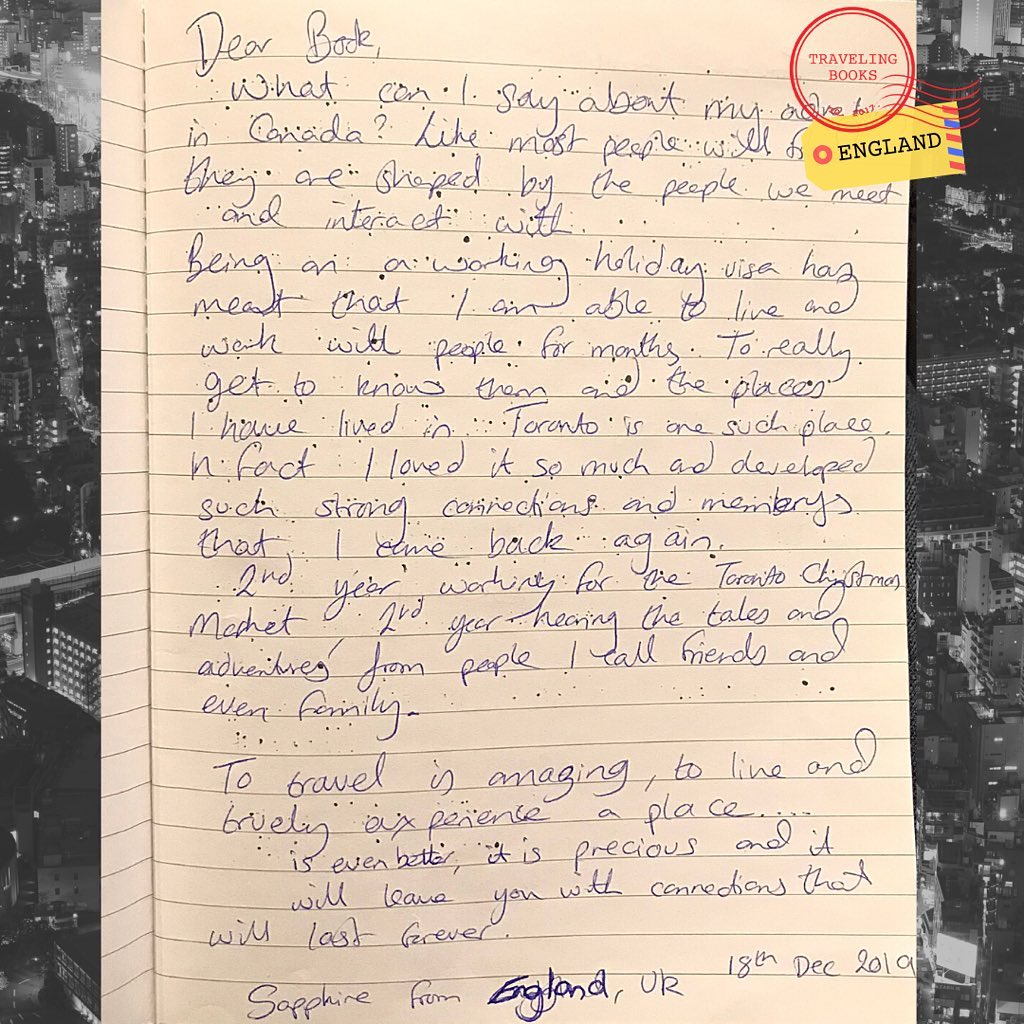 Dear Book,
What can I say about my
in Canada? Like most people will
they are shaped by the people we meet
and interact with.
Being on a working holiday visa has
meant that I am able to live and
work with people for months. To really
get to know them and the places
I have lived in. Toronto is one such place.
In fact I loved it so much and developed
such strong connections and memberys
that, I came back again.
2nd year working for the Toronto Christmas
Market, 2nd year hearing the tales and
adventures from people I call friends and
even family.
To travel is amazing, to live and
truely experience a place....
is even better, it is precious and it
will leave you with connections that
will last forever.
18th Dec 2019
Sapphire from England, UK
TRAVELING
BOOKS
2017
ENGLAND